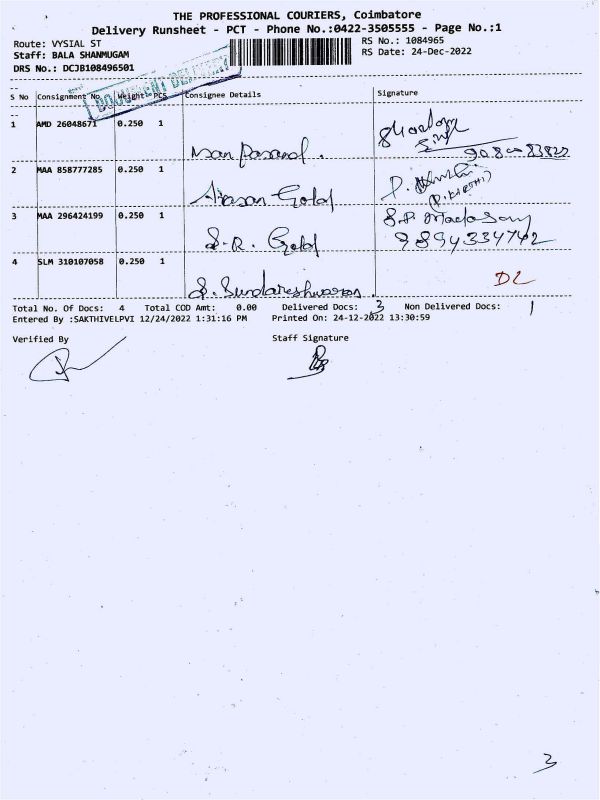 THE PROFESSIONAL COURIERS, Coimbatore
Delivery Runsheet - PCT - Phone No.:0422-3505555 - Page No.:1
Route: VYSIAL ST
RS No.: 1084965
Staff: BALA SHANMUGAM
RS Date: 24-Dec-2022
DRS No.: DCJB108496501
DOCUMENT DELIVERY
S No Consignment No. Weight PCS Consignee Details Signature
1 AMD 26048671 0.250 1
2 MAA 858777285 0.250 1 Arasan Gold P.
3 MAA 296424199 0.250 1 S.R. Gold
9894334742
4 SLM 310107058 0.250 1 S. Sundareshwaran
Total No. Of Docs: 4 Total COD Amt: 0.00 Delivered Docs: 3 Non Delivered Docs: 1
Entered By :SAKTHIVELPVI 12/24/2022 1:31:16 PM Printed On: 24-12-2022 13:30:59
Verified By Staff Signature
3